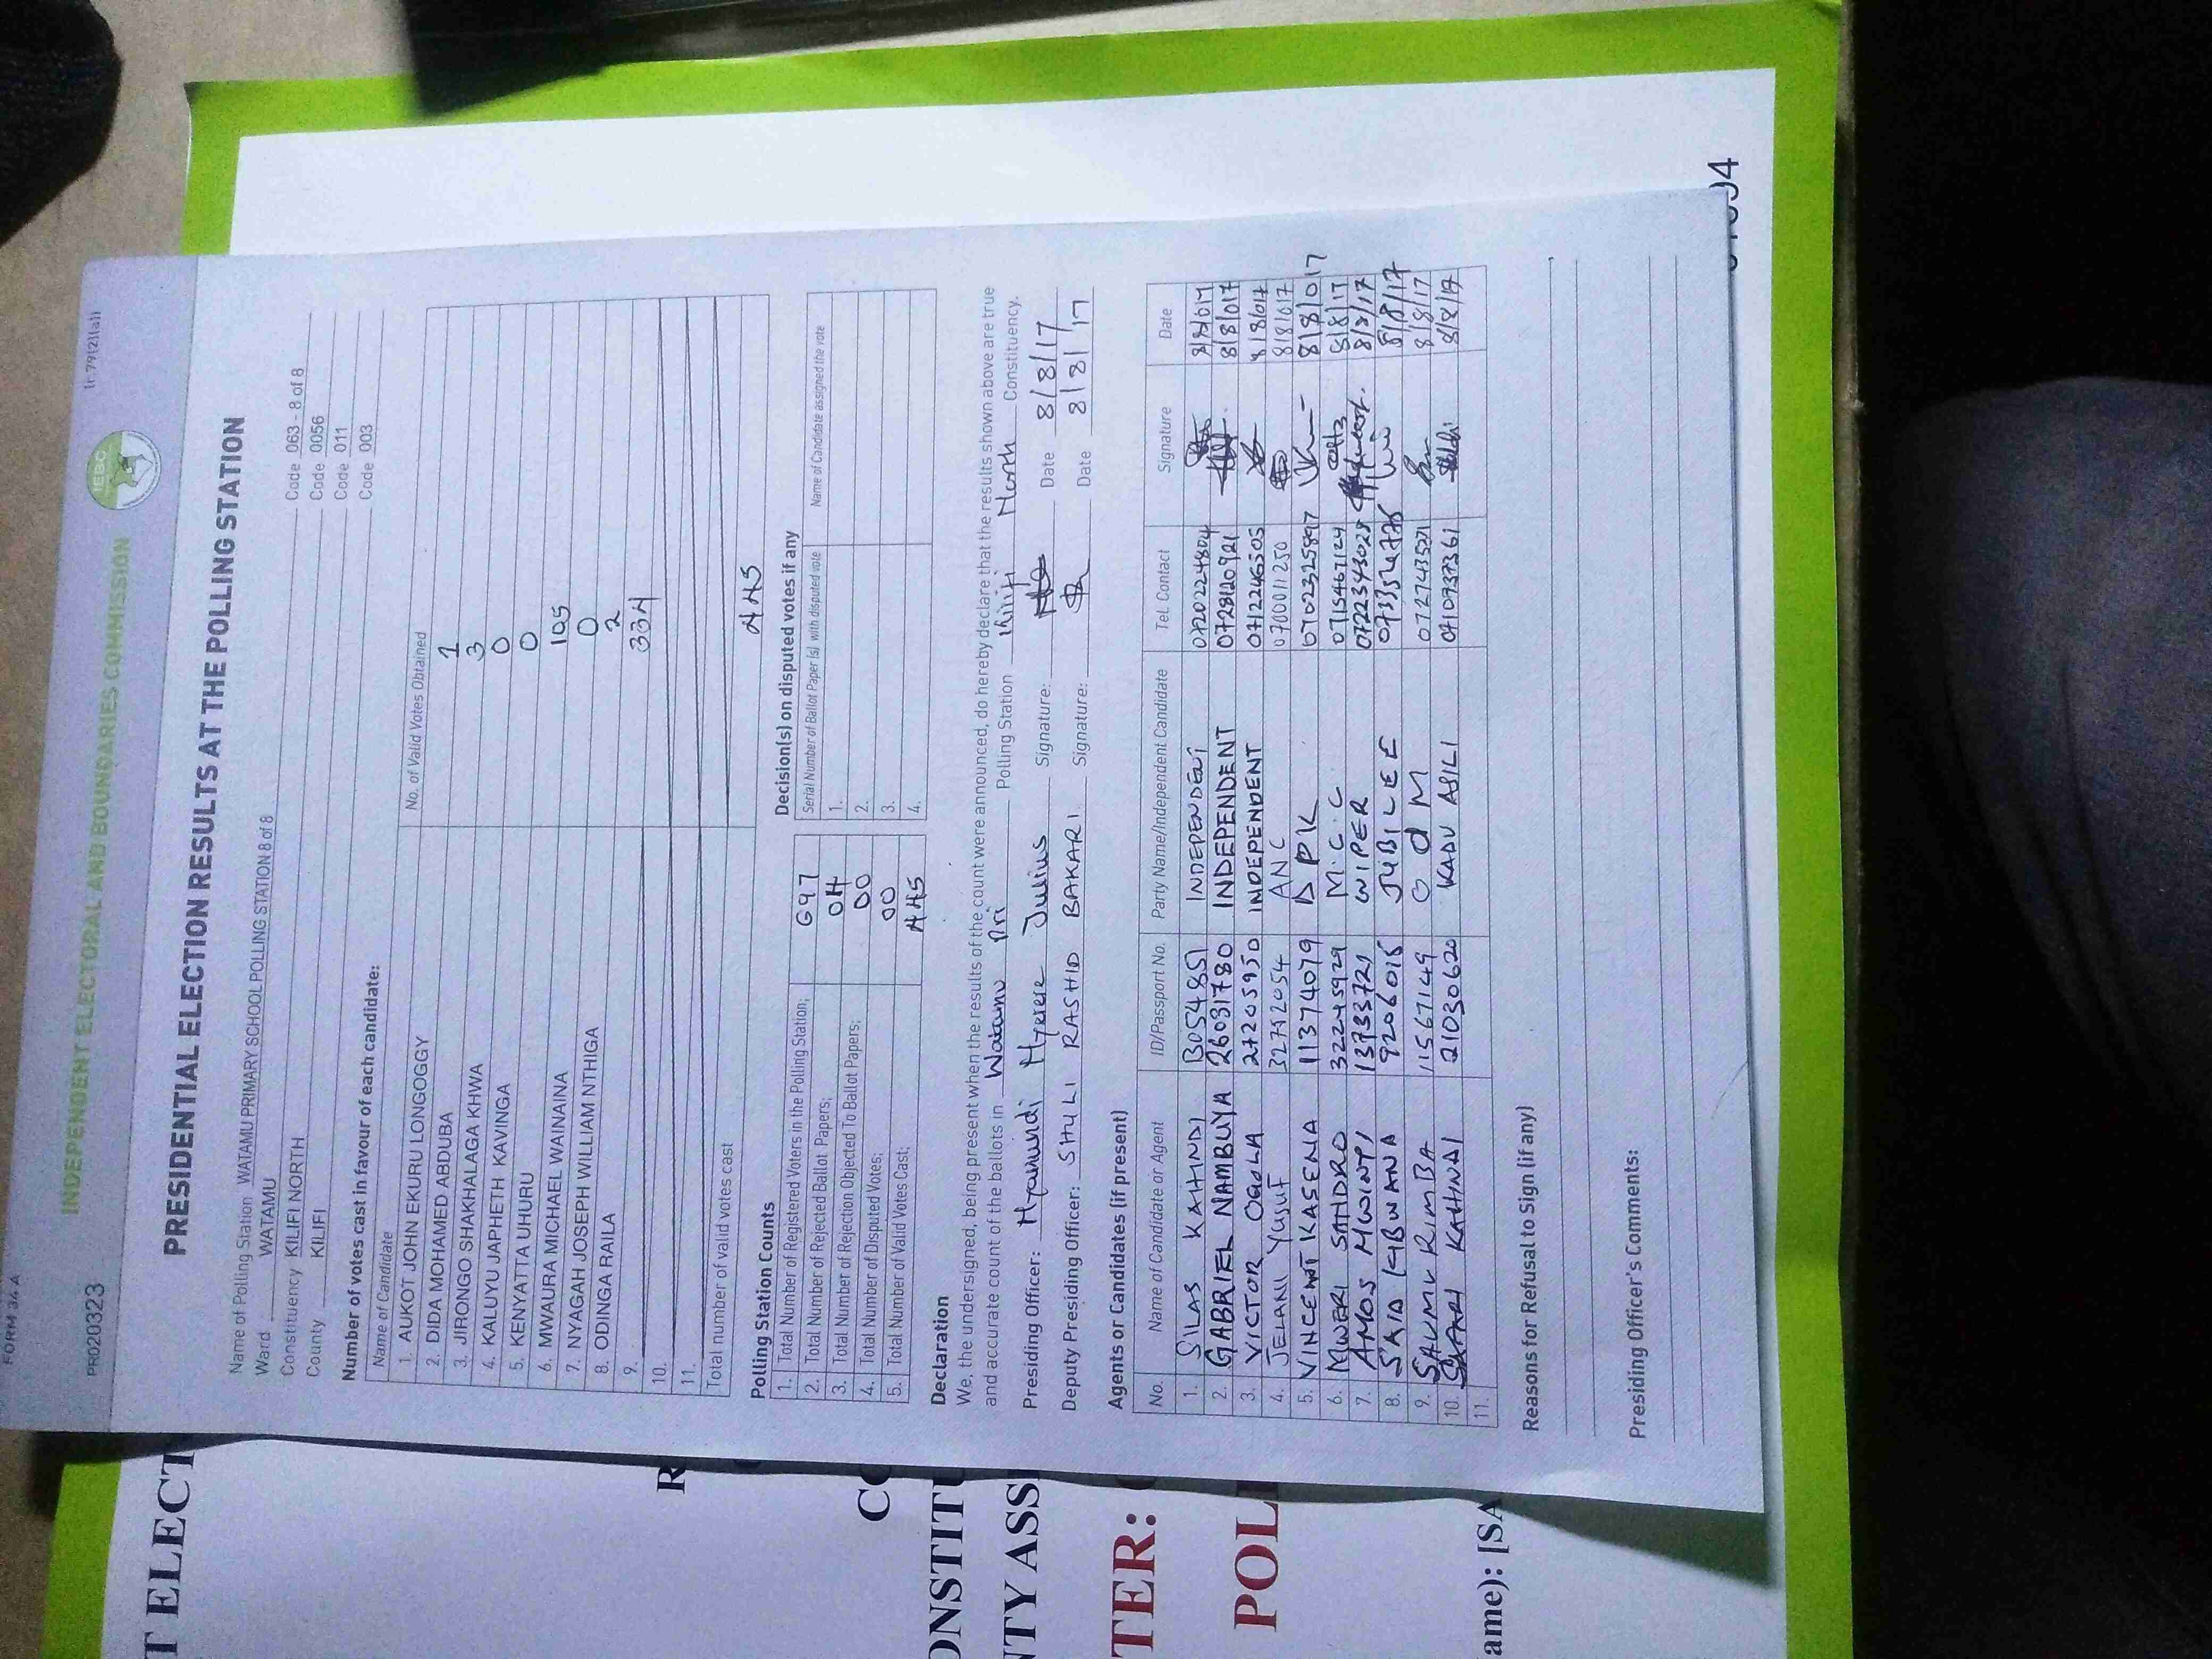 FORM 34 A
(r.79(2)(a))
PR020323
INDEPENDENT ELECTORAL AND BOUNDARIES COMMISSION
IEBC
PRESIDENTIAL ELECTION RESULTS AT THE POLLING STATION
Name of Polling Station WATAMU PRIMARY SCHOOL POLLING STATION 8 of 8 Code 063 - 8 of 8
Ward WATAMU Code 0056
Constituency KILIFI NORTH Code 011
County KILIFI Code 003
Number of votes cast in favour of each candidate:
Name of Candidate No. of Valid Votes Obtained
1. AUKOT JOHN EKURU LONGOGGY 1
2. DIDA MOHAMED ABDUBA 3
3. JIRONGO SHAKHALAGA KHWA 0
4. KALUYU JAPHETH KAVINGA 0
5. KENYATTA UHURU 105
6. MWAURA MICHAEL WAINAINA 0
7. NYAGAH JOSEPH WILLIAM NTHIGA 2
8. ODINGA RAILA 334
9.
10.
11.
Total number of valid votes cast 445
Polling Station Counts
1. Total Number of Registered Voters in the Polling Station; 697
2. Total Number of Rejected Ballot Papers; 04
3. Total Number of Rejection Objected To Ballot Papers; 00
4. Total Number of Disputed Votes; 00
5. Total Number of Valid Votes Cast; 445
Decision(s) on disputed votes if any
Serial Number of Ballot Paper (s) with disputed vote Name of Candidate assigned the vote
1.
2.
3.
4.
Declaration
We, the undersigned, being present when the results of the count were announced, do hereby declare that the results shown above are true
and accurate count of the ballots in Watamu Pri Polling Station Kilifi North Constituency.
Presiding Officer: Nyamundi Nyerere Julius Signature: Date 8/8/17
Deputy Presiding Officer: RASHID BAKARI Signature: Date 8/8/17
Agents or Candidates (if present)
No. Name of Candidate or Agent ID/Passport No. Party Name/Independent Candidate Tel. Contact Signature Date
1. SILAS KAHINDI B054851 INDEPENDENT 0720224804 8/8/017
2. GABRIEL NAMBUYA 26031780 INDEPENDENT 0728120921 8/8/017
3. VICTOR OGOLA 27205950 INDEPENDENT 0712246505 8/8/017
4. JELANI YUSUF 32712054 ANC 0700011250 8/8/017
5. VINCENT KASENA 11374079 DPK 0702325897 8/8/017
6. MWERI SANDRO 32245929 M.C.C 0715467124 8/8/17
7. AMOS MWINYI 13733721 WIPER 0722343028 8/8/17
8. SAID KABWANA 9206015 JUBILEE 8/8/17
9. SAUMU KIMBA 11567149 ODM 0727435271 8/8/17
10. SAFARI KAHINDI 21030620 KADU ASILI 0710937361 8/8/17
11.
Reasons for Refusal to Sign (if any)
Presiding Officer's Comments:
T ELECT
R
CO
ONSTITU
NTY ASS
TER:
POL
ame): [SA